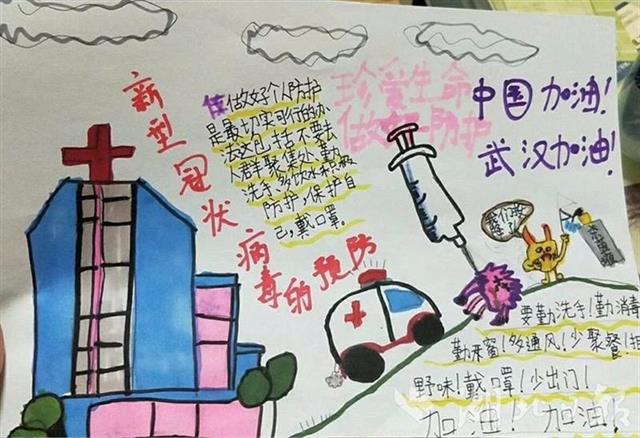 新型冠状病毒的预防
做好个人防护
是最切实可行的办
法这包括不要去
人群聚集处,勤
洗手,多饮水,积极
防护,保护自
己,戴口罩。
珍爱生命
做好防护
中国加油!
武汉加油!
要勤洗手!勤消毒
勤开窗!多通风!少聚餐!拒
野味!戴口罩!少出门!
加油!加油!